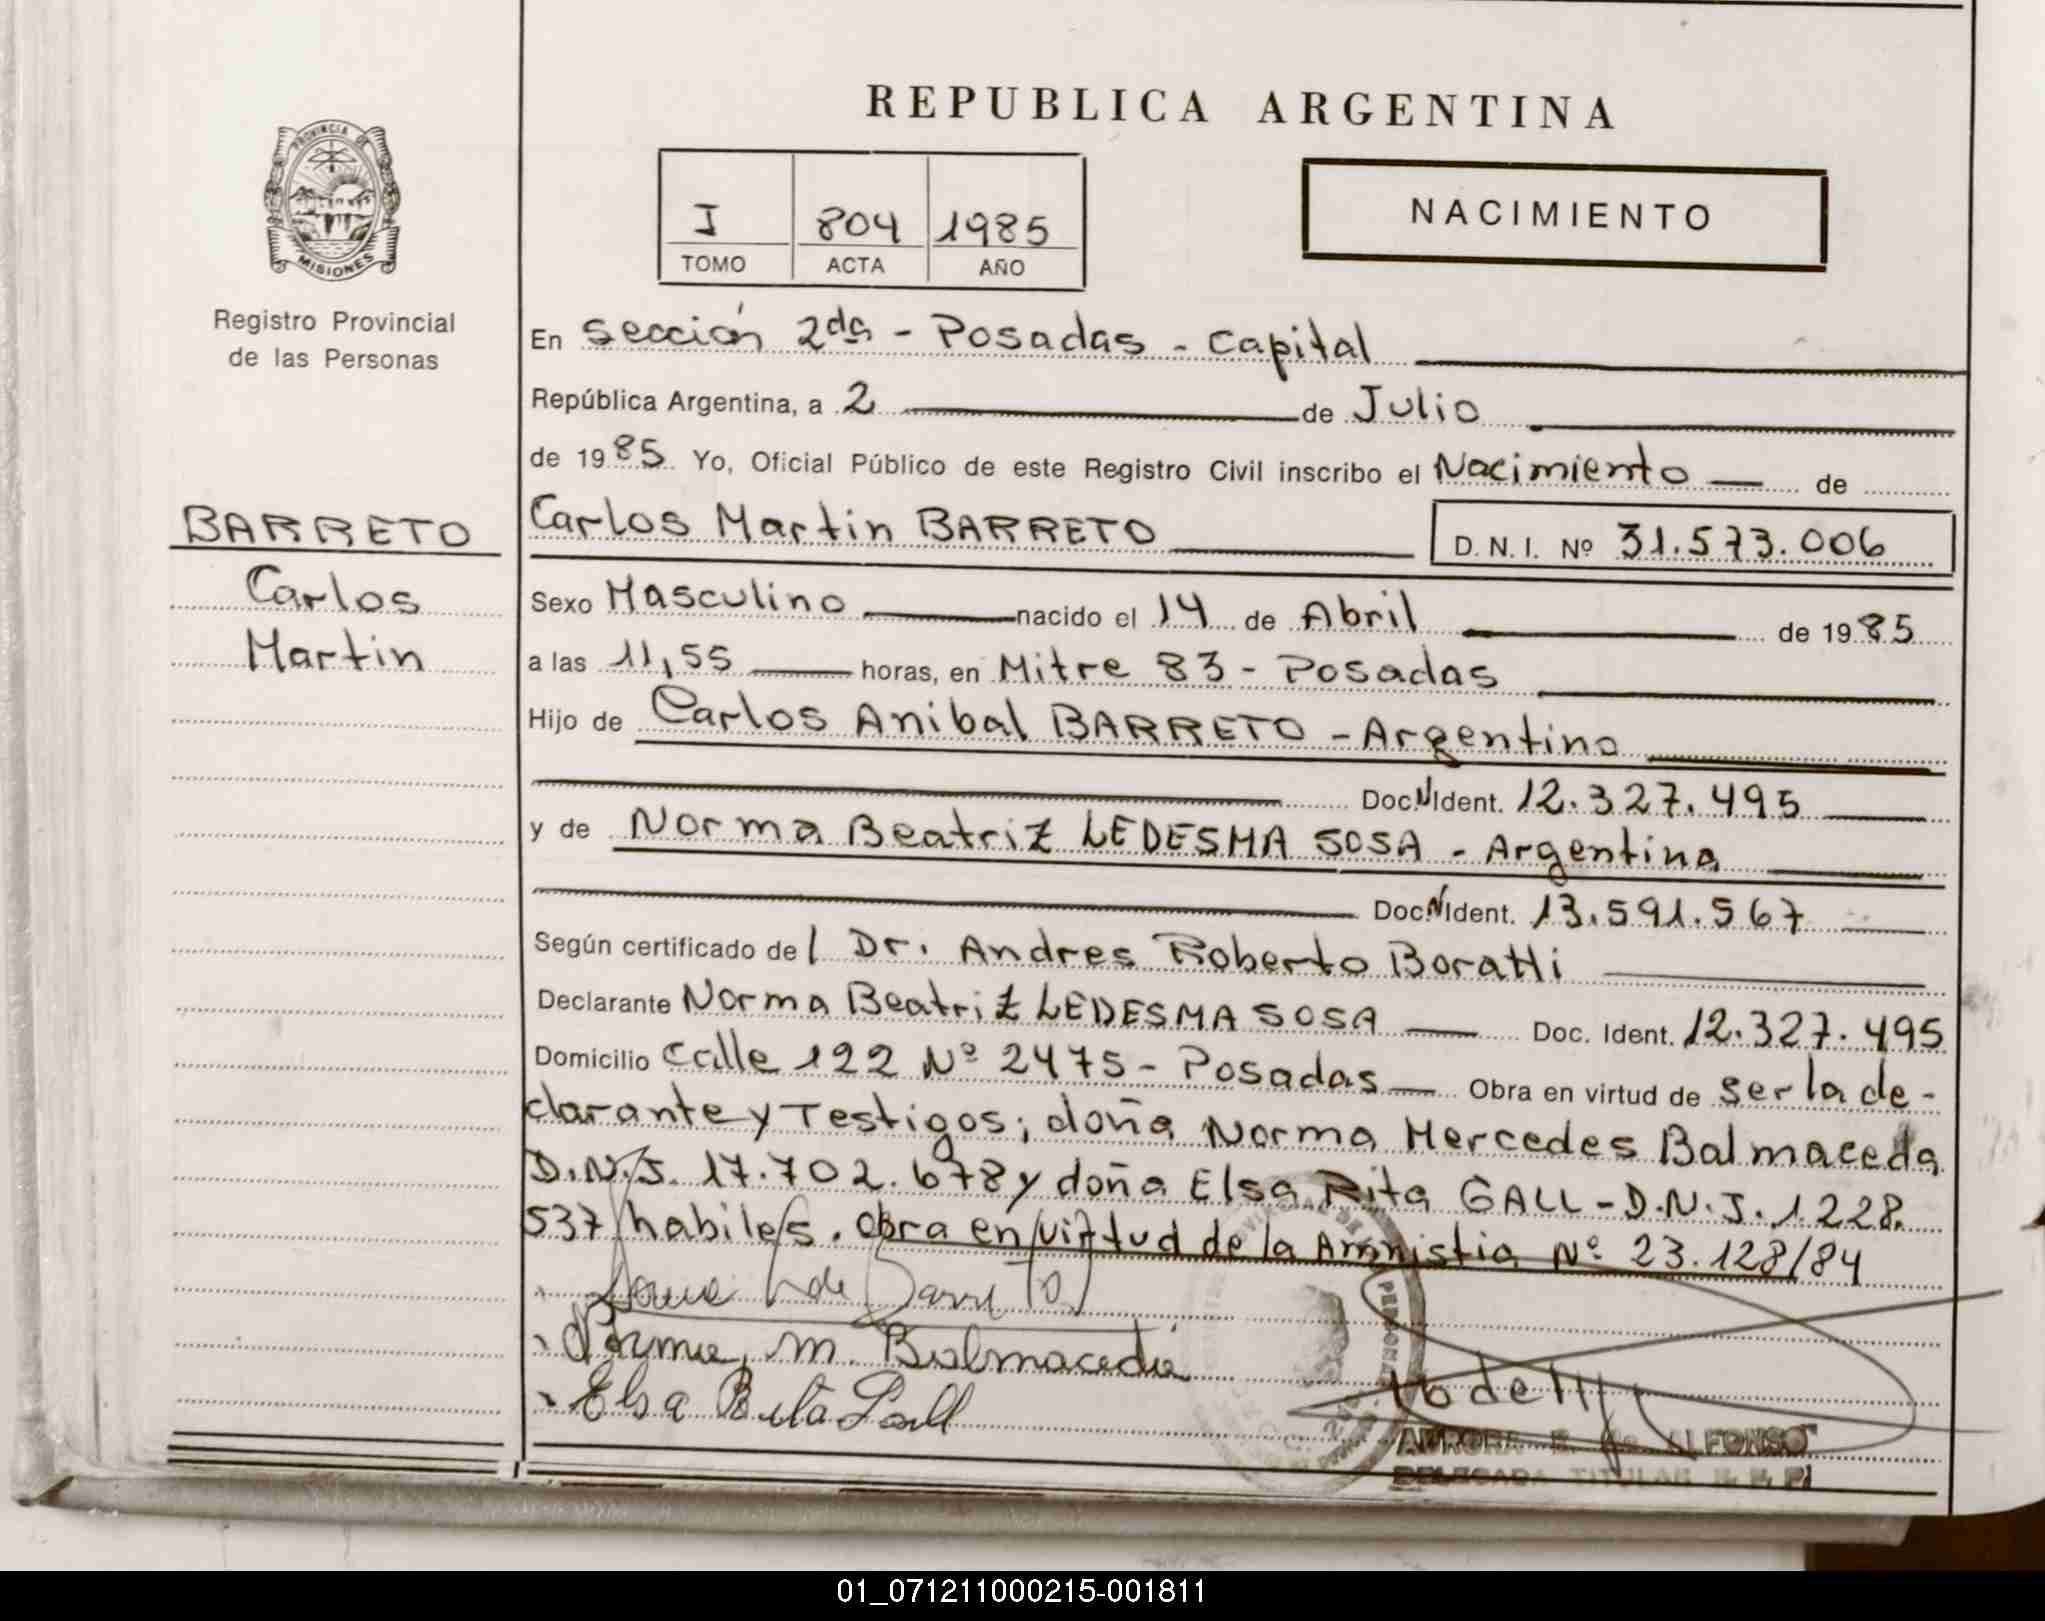 REPUBLICA ARGENTINA
PROVINCIA DE
MISIONES
Registro Provincial
de las Personas
I 804 1985
TOMO ACTA AÑO
NACIMIENTO
En Sección 2da - Posadas - Capital
República Argentina, a 2 de Julio
de 1985 Yo, Oficial Público de este Registro Civil inscribo el Nacimiento de
BARRETO
Carlos
Martin
Carlos Martin BARRETO D. N. I. Nº 31.573.006
Sexo Masculino nacido el 14 de Abril de 1985
a las 11,55 horas, en Mitre 83 - Posadas
Hijo de Carlos Anibal BARRETO - Argentino
Doc.N Ident. 12.327.495
y de Norma Beatriz LEDESMA SOSA - Argentina
Doc.N Ident. 13.591.567
Según certificado del Dr. Andres Roberto Boratti
Declarante Norma Beatriz LEDESMA SOSA Doc. Ident. 12.327.495
Domicilio Calle 122 Nº 2475 - Posadas Obra en virtud de ser la de-
clarante y Testigos; doña Norma Mercedes Balmaceda
D.N.I. 17.702.678 y doña Elsa Rita GALL - D.N.I. 1.228.
537 habiles. Obra en virtud de la Amnistia Nº 23.128/84
Norma M. Balmaceda
Elsa Rita Gall
AURORA E. de ALFONSO
DELEGADA TITULAR R. P. P.
01_071211000215-001811